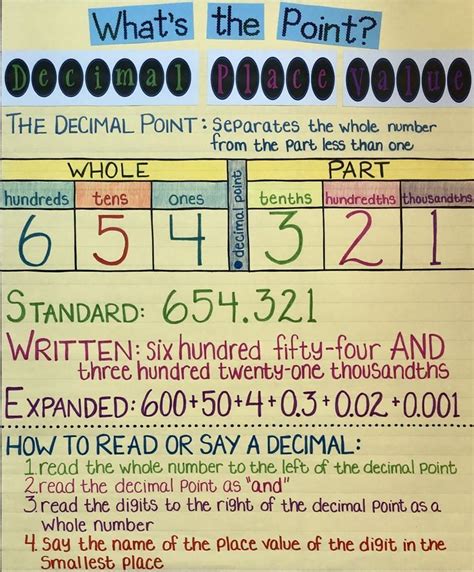 What's the Point?
Decimal Place Value
THE DECIMAL POINT: Separates the whole number
from the part less than one
WHOLE PART
hundreds tens ones decimal point tenths hundredths thousandths
6 5 4 3 2 1
STANDARD: 654.321
WRITTEN: Six hundred fifty-four AND
three hundred twenty-one thousandths
EXPANDED: 600+50+4+0.3+0.02+0.001
HOW TO READ OR SAY A DECIMAL:
1. read the whole number to the left of the decimal point
2. read the decimal point as "and"
3. read the digits to the right of the decimal point as a
whole number
4. Say the name of the place value of the digit in the
smallest place